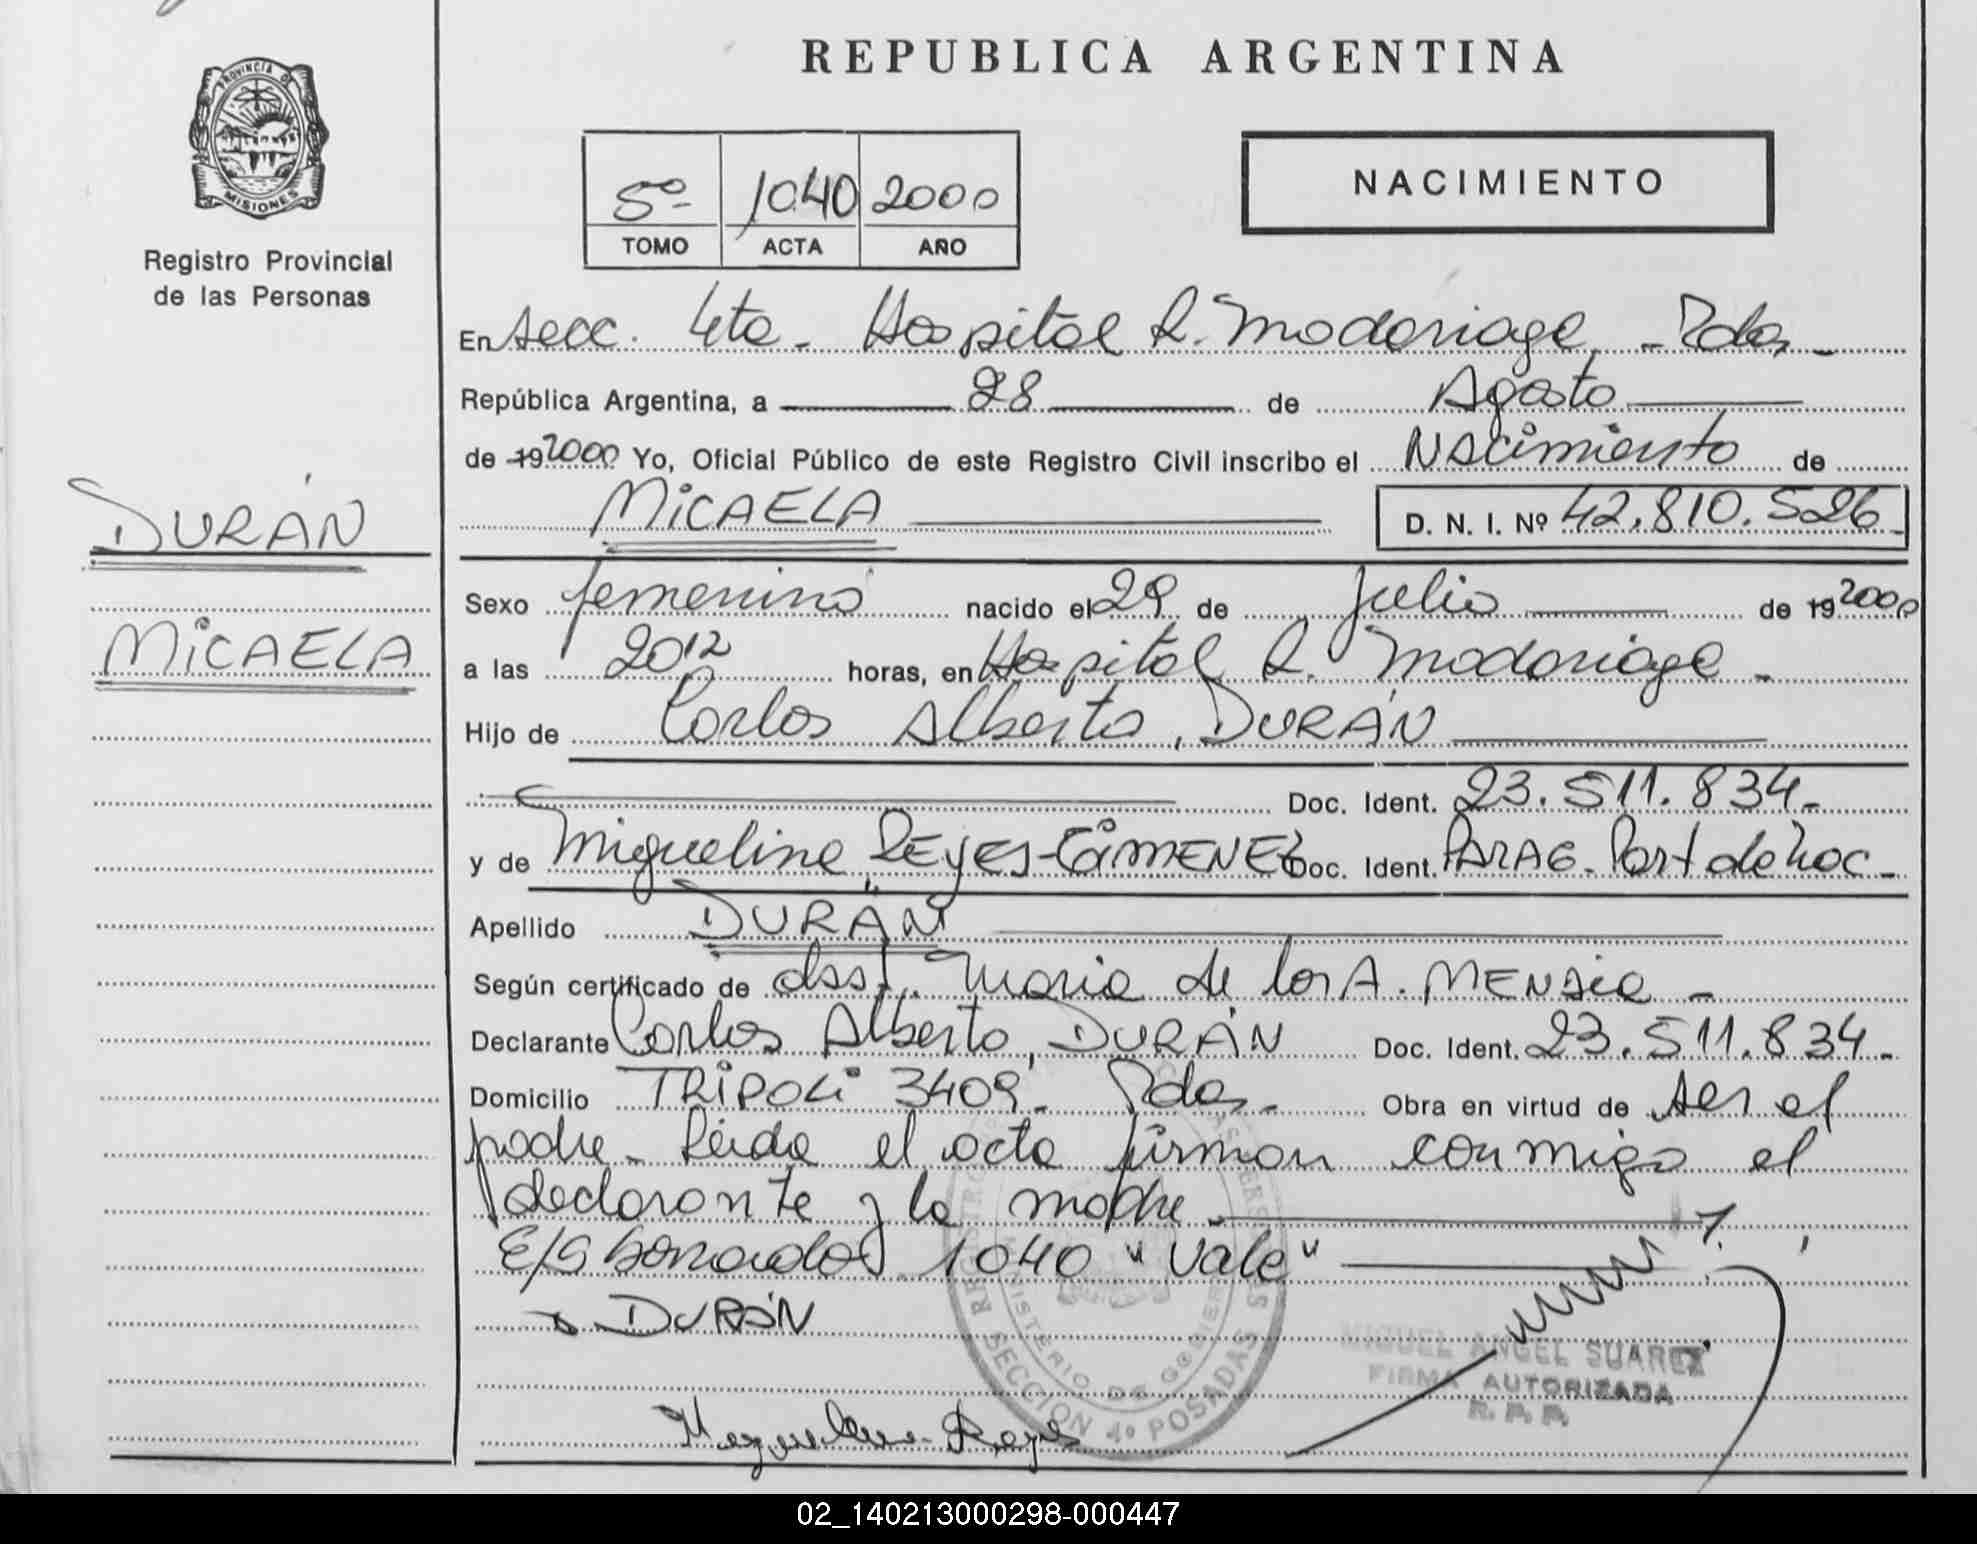 REPUBLICA ARGENTINA
PROVINCIA DE
MISIONES
Registro Provincial
de las Personas
5º 1040 2000
TOMO ACTA AÑO
NACIMIENTO
En Secc. 4ta. Hospital R. Madariaga - Pdas
República Argentina, a 28 de Agosto
de 19 2000 Yo, Oficial Público de este Registro Civil inscribo el Nacimiento de
MICAELA D. N. I. Nº 42.810.526
DURÁN
MICAELA
Sexo femenino nacido el 29 de Julio de 19 2000
a las 2012 horas, en Hospital R. Madariaga -
Hijo de Carlos Alberto, DURÁN
Doc. Ident. 23.511.834-
y de Miguelina REYES-GIMENEZ Doc. Ident. PARAG. Part de Nac -
Apellido DURÁN
Según certificado de Maria de los A.
Declarante Carlos Alberto, DURÁN Doc. Ident. 23.511.834-
Domicilio TRIPOLI 3409- Pdas - Obra en virtud de ser el
padre - Leida el acta firman conmigo el
declarante y la madre
E/S borrados 1040 "Vale"
DURÁN
MIGUEL ANGEL SUAREZ
FIRMA AUTORIZADA
R. P. P.
SECCION 4º POSADAS
MINISTERIO DE GOBIERNO
Miguelina Reyes
02_140213000298-000447